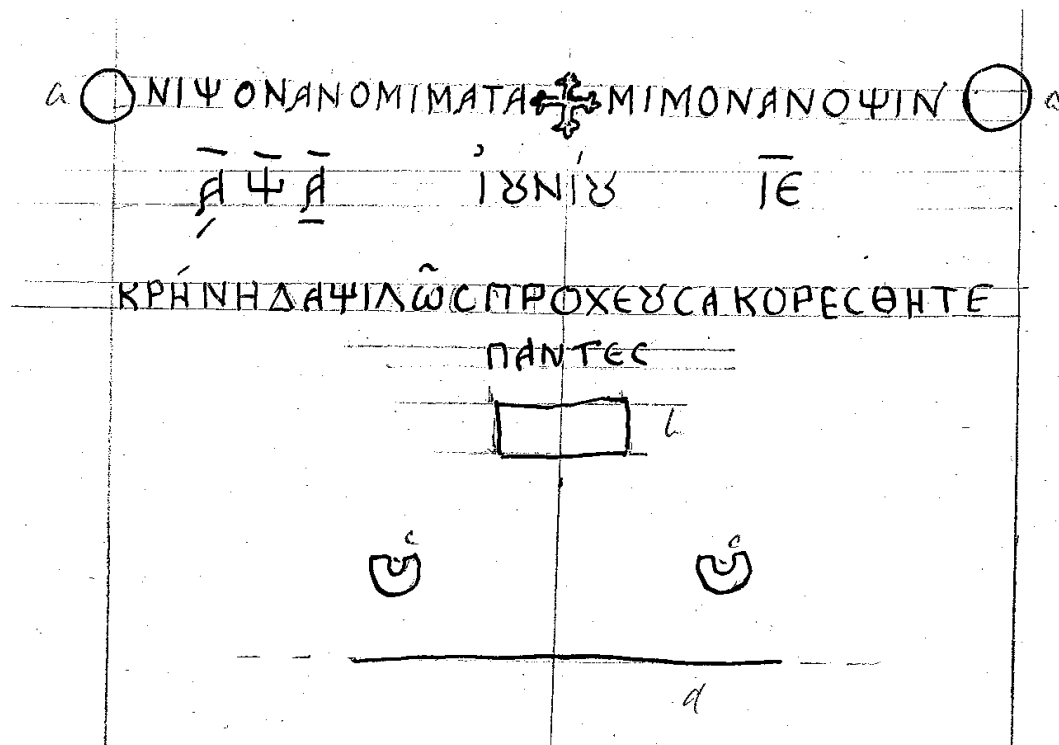 a ΝΙΨΟΝΑΝΟΜΙΜΑΤΑ ΜΙΜΟΝΑΝΟΨΙΝ a
͵Α̅Ψ̅Α̅ ἸȢΝΊȢ Ι̅Ε̅
ΚΡΉΝΗΔΑΨΙΛΩ͂ϹΠΡΟΧΕȢϹΑ ΚΟΡΕϹΘΗΤΕ
ΠΆΝΤΕϹ
b
c c
d